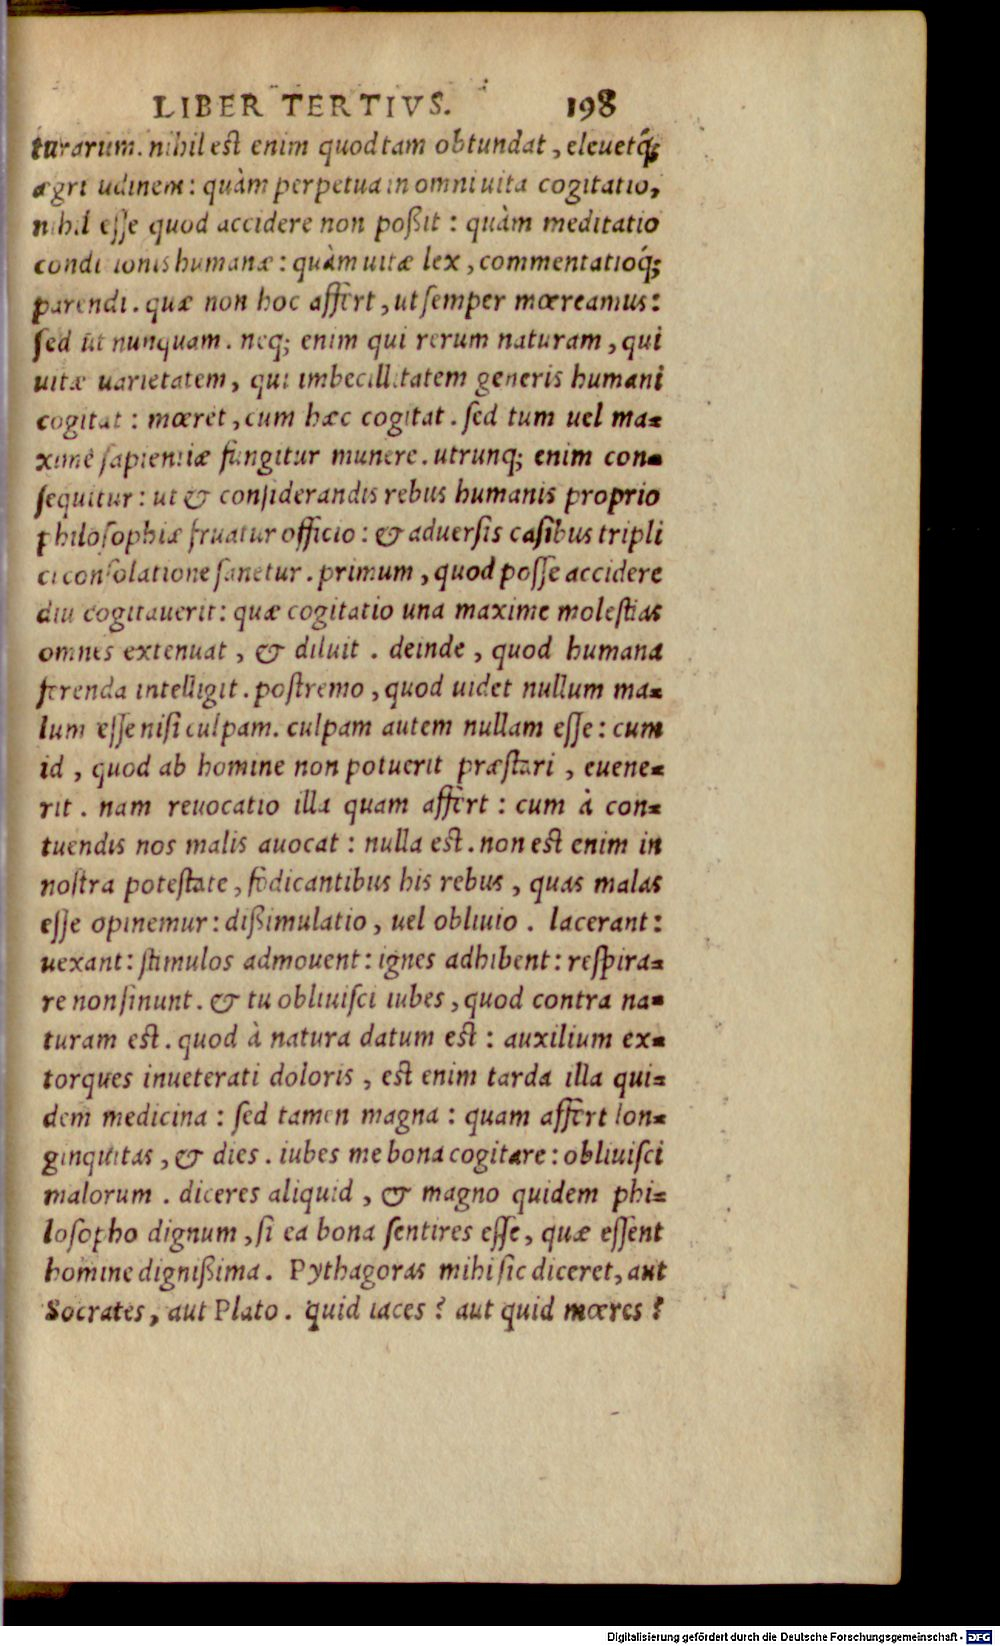 LIBER TERTIVS. 198
turarum. nihil est enim quod tam obtundat, eleuetq́;
ægri udinem: quàm perpetua in omni uita cogitatio,
nihil esse quod accidere non poßit: quàm meditatio
condi ionis humanæ: quàm uitæ lex, commentatioq́;
parendi. quæ non hoc affert, ut semper mœreamus:
sed ut nunquam. neq; enim qui rerum naturam, qui
uitæ uarietatem, qui imbecillitatem generis humani
cogitat: mœret, cum hæc cogitat. sed tum uel ma=
xime sapientiæ fungitur munere. utrunq; enim con=
sequitur: ut & considerandis rebus humanis proprio
philosophiæ fruatur officio: & aduersis casibus tripli
ci consolatione sanetur. primum, quod posse accidere
diu cogitauerit: quæ cogitatio una maxime molestias
omnes extenuat, & diluit. deinde, quod humana
ferenda intelligit. postremo, quod uidet nullum ma=
lum esse nisi culpam. culpam autem nullam esse: cum
id, quod ab homine non potuerit præstari, euene=
rit. nam reuocatio illa quam affert: cum à con=
tuendis nos malis auocat: nulla est. non est enim in
nostra potestate, fodicantibus his rebus, quas malas
esse opinemur: dißimulatio, uel obliuio. lacerant:
uexant: stimulos admouent: ignes adhibent: respira=
re non sinunt. & tu obliuisci iubes, quod contra na=
turam est. quod à natura datum est: auxilium ex=
torques inueterati doloris, est enim tarda illa qui=
dem medicina: sed tamen magna: quam affert lon=
ginquitas, & dies. iubes me bona cogitare: obliuisci
malorum. diceres aliquid, & magno quidem phi=
losopho dignum, si ea bona sentires esse, quæ essent
homine dignißima. Pythagoras mihi sic diceret, aut
Socrates, aut Plato. quid iaces? aut quid mœres?
Digitalisierung gefördert durch die Deutsche Forschungsgemeinschaft - DFG